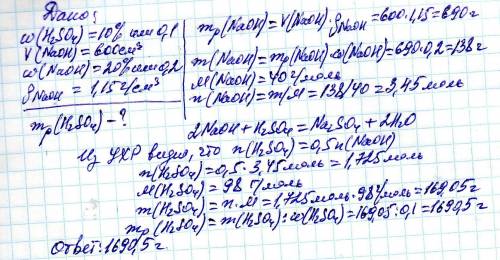 Дано:
ω(H₂SO₄)=10% или 0,1
V(NaOH)=600см³
ω(NaOH)=20% или 0,2
ρNaOH = 1,15г/см³
mр(H₂SO₄)-?
mр(NaOH)=V(NaOH)·ρNaOH=600·1,15=690г
m(NaOH)=mр(NaOH)·ω(NaOH)=690·0,2=138г
M(NaOH)=40г/моль
n(NaOH)=m/M=138/40=3,45моль
2NaOH+H₂SO₄=Na₂SO₄+2H₂O
Из УХР видно, что n(H₂SO₄)=0,5n(NaOH)
n(H₂SO₄)=0,5·3,45моль=1,725моль
M(H₂SO₄)=98 г/моль
m(H₂SO₄)=n·M=1,725моль·98г/моль=169,05г
mр(H₂SO₄)=m(H₂SO₄):ω(H₂SO₄)=169,05:0,1=1690,5г
Ответ:1690,5г